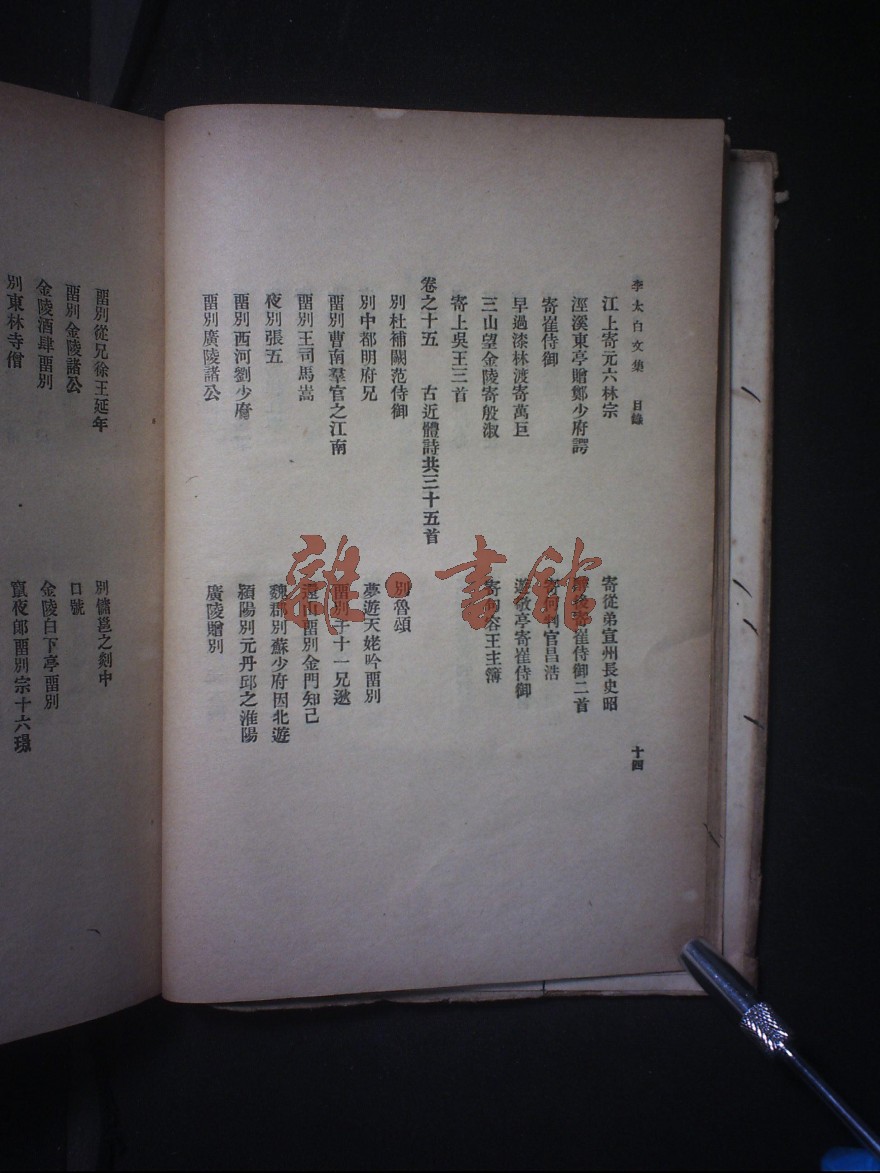 李太白文集 目錄 十四
江上寄元六林宗 寄從弟宣州長史昭
涇溪東亭贈鄭少府諤 後寄崔侍御二首
寄崔侍御 寄何判官昌浩
早過漆林渡寄萬巨 遊敬亭寄崔侍御
三山望金陵寄殷淑 寄句容王主簿
寄上吳王三首
卷之十五 古近體詩共三十五首
別杜補闕范侍御 別魯頌
別中都明府兄 夢遊天姥吟畱別
畱別曹南羣官之江南 畱別于十一兄逖
畱別王司馬嵩 還山畱別金門知己
夜別張五 魏郡別蘇少府因北遊
畱別西河劉少府 潁陽別元丹邱之淮陽
畱別廣陵諸公 廣陵贈別
畱別從兄徐王延年 別儲邕之剡中
畱別金陵諸公 口號
金陵酒肆畱別 金陵白下亭畱別
別東林寺僧 竄夜郎畱別宗十六璟
雜·書館